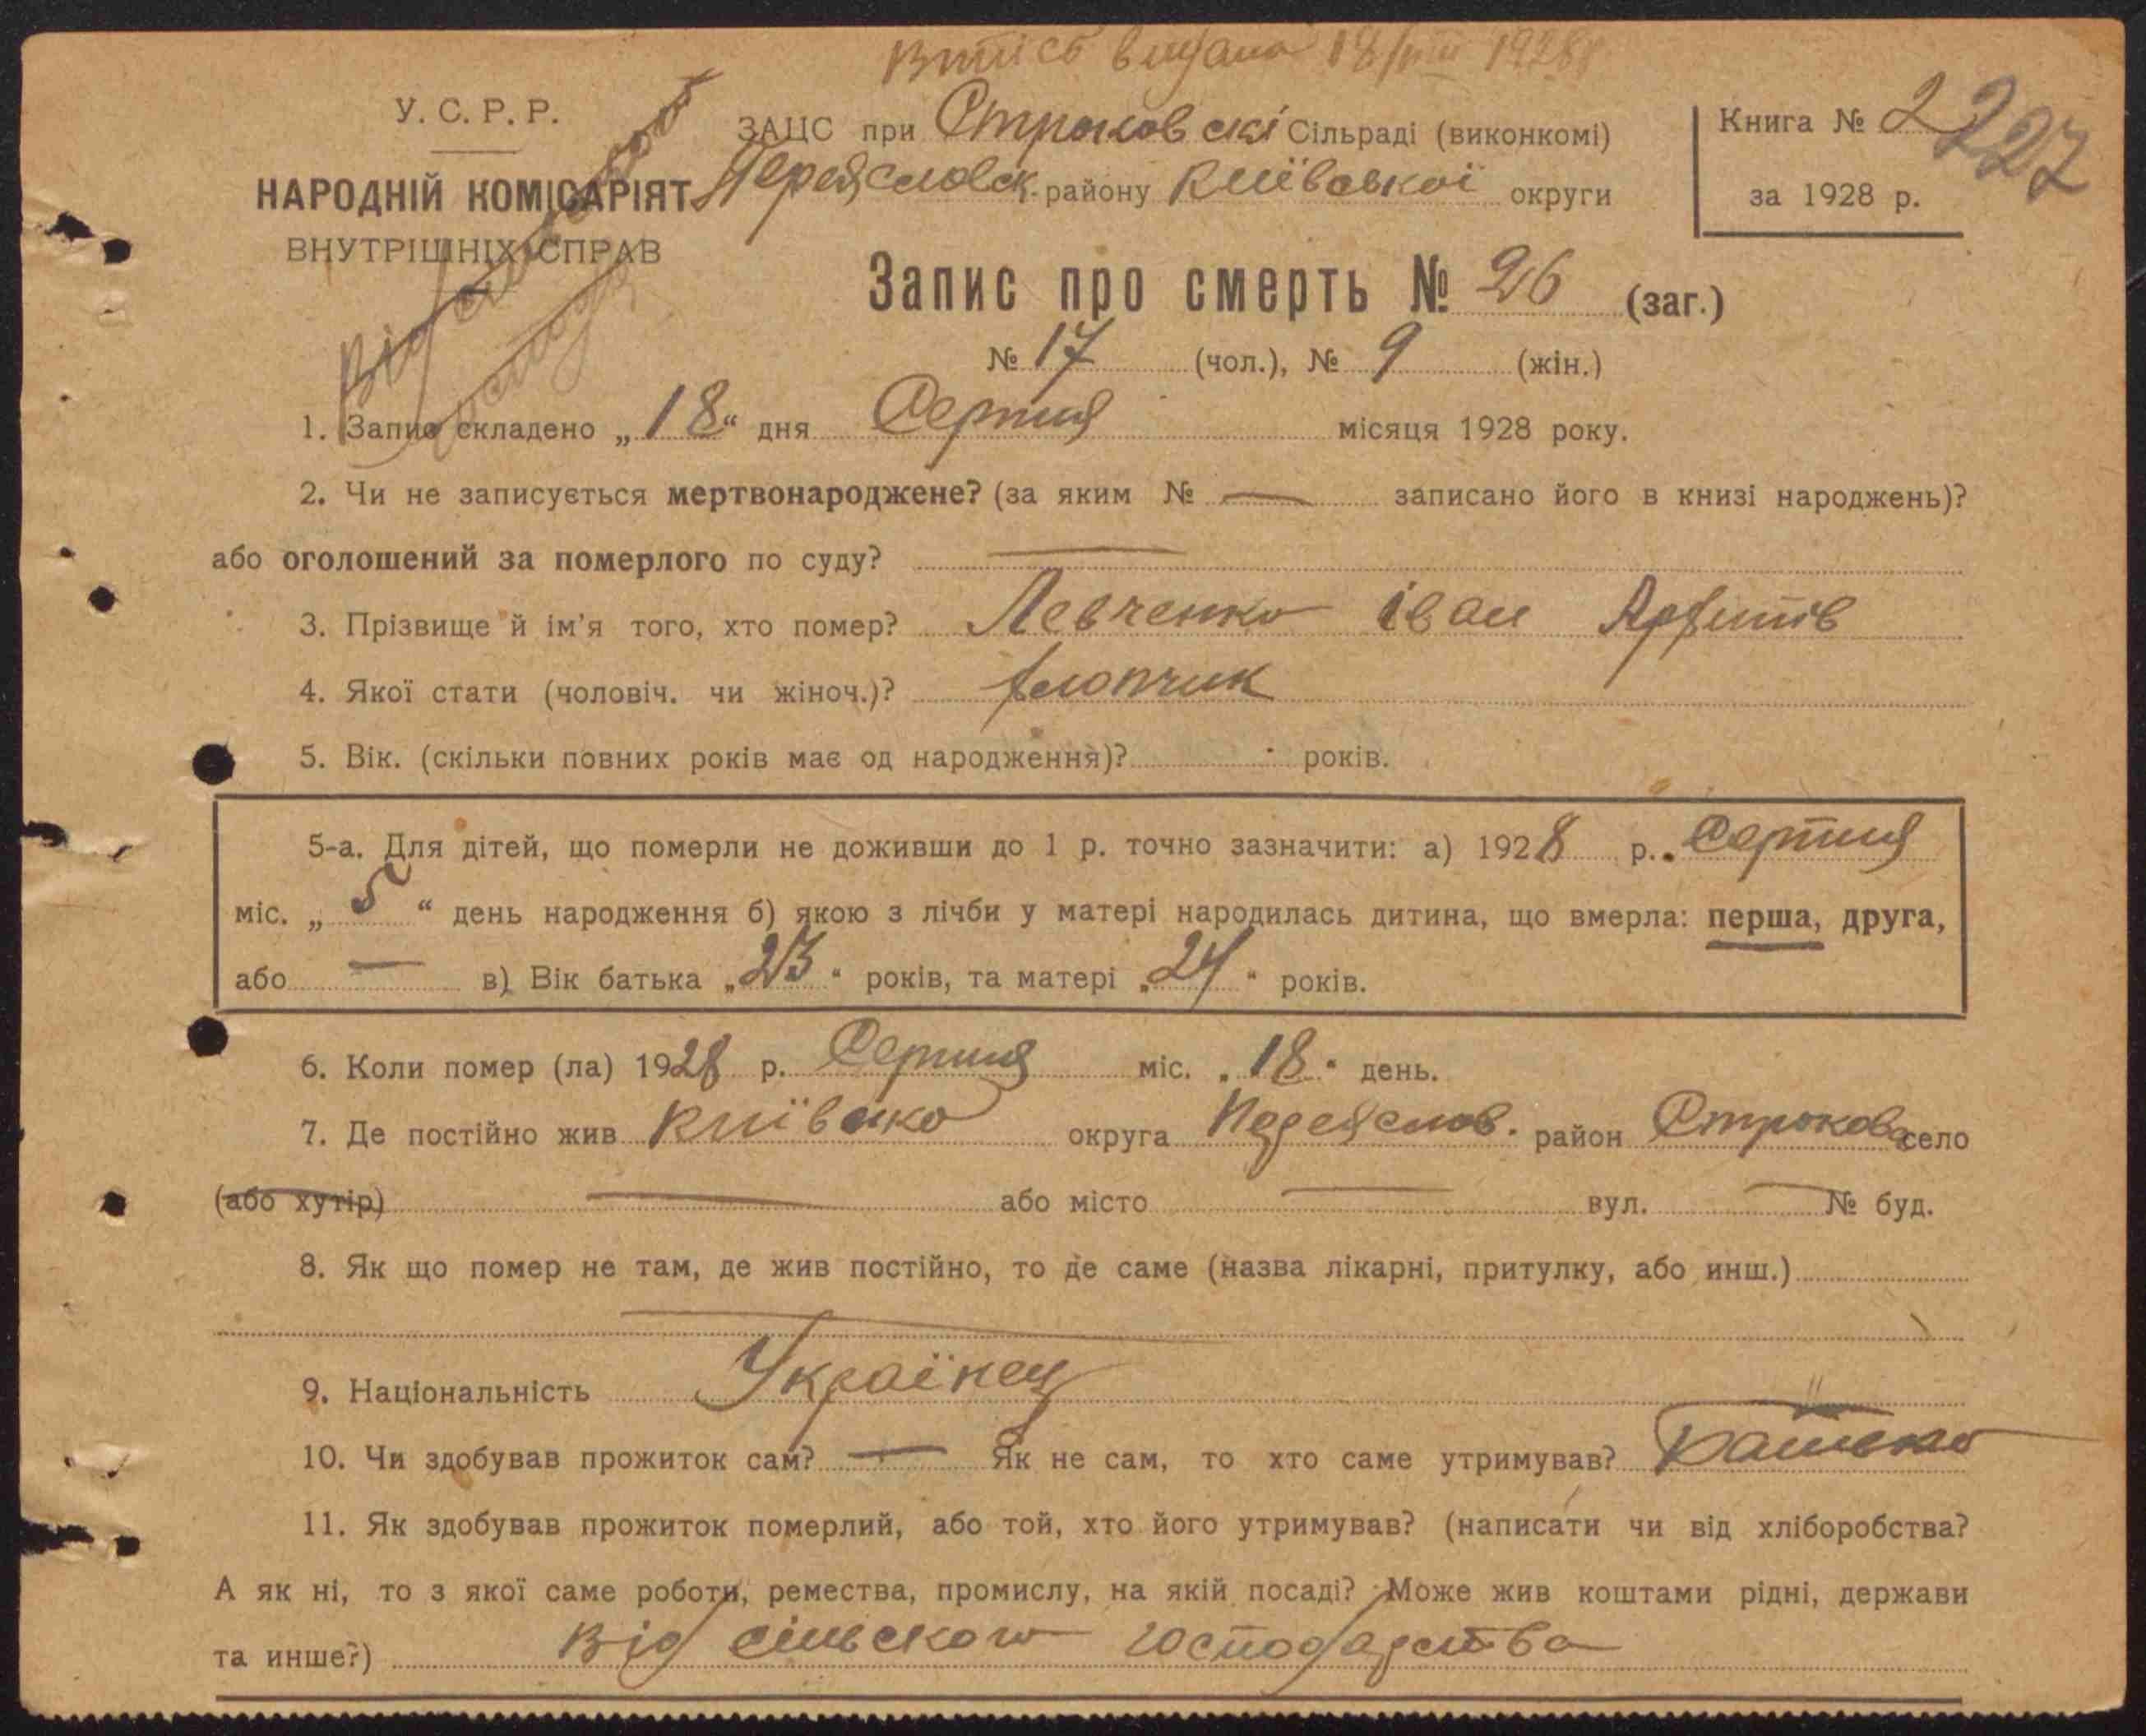 Витісь видана 18/VIII 1928 р
У. С. Р. Р.
НАРОДНІЙ КОМІСАРІЯТ
ВНУТРІШНІХ СПРАВ
ЗАЦС при Строковскі Сільраді (виконкомі)
Переяславск. району Київської округи
Книга № 2
227
за 1928 р.
Запис про смерть № 26 (заг.)
№ 17 (чол.), № 9 (жін.)
1. Запис складено „18“ дня Серпня місяця 1928 року.
2. Чи не записується мертвонароджене? (за яким № — записано його в книзі народжень)?
або оголошений за померлого по суду? —
3. Прізвище й ім'я того, хто помер? Левченко Іван
4. Якої стати (чоловіч. чи жіноч.)? хлопчик
5. Вік. (скільки повних років має од народження)? років.
5-а. Для дітей, що померли не доживши до 1 р. точно зазначити: а) 1928 р. Серпня
міс. „5“ день народження б) якою з лічби у матері народилась дитина, що вмерла: перша, друга,
або — в) Вік батька „23“ років, та матері „24“ років.
6. Коли помер (ла) 1928 р. Серпня міс. „18“ день.
7. Де постійно жив Київсько округа Переяслов. район Строкова село
(або хутір) — або місто — вул. — № буд.
8. Як що помер не там, де жив постійно, то де саме (назва лікарні, притулку, або инш.)
—
9. Національність Українец
10. Чи здобував прожиток сам? — Як не сам, то хто саме утримував? Батько
11. Як здобував прожиток померлий, або той, хто його утримував? (написати чи від хліборобства?
А як ні, то з якої саме роботи, ремества, промислу, на якій посаді? Може жив коштами рідні, держави
та инше?) Від сільского господарства